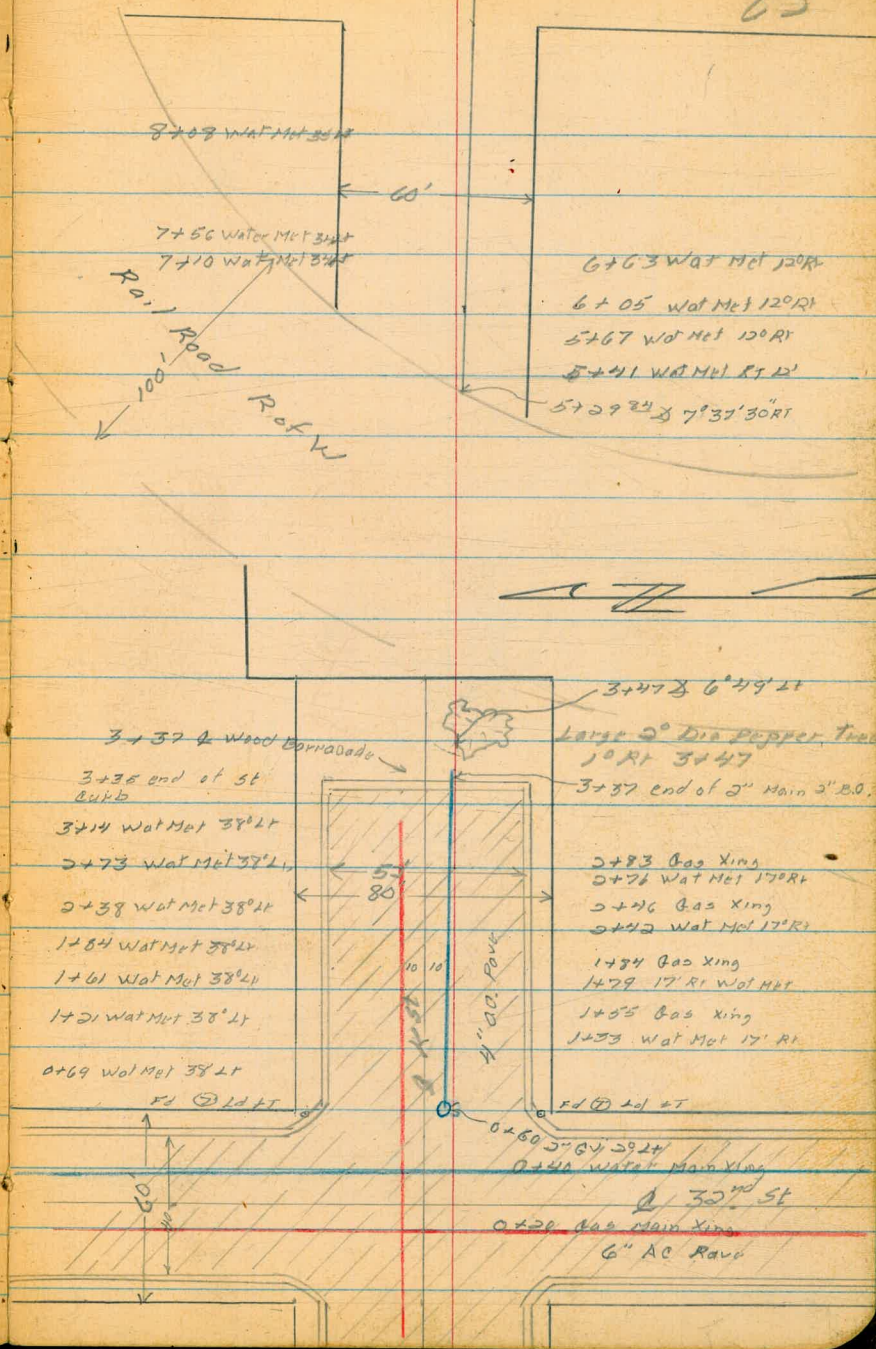 8+08 Wat Met
60'
7+56 Water Met
7+10 Wat Met
Rail Road R of W
100'
6+63 Wat Met 12° Rt
6+05 Wat Met 12° Rt
5+67 Wat Met 12° Rt
5+41 Wat Met RT 12'
5+29 84 7°37'30" RT
3+47 6°49' Lt
Large 2° Dia Pepper Tree
1° Rt 3+47
3+37 ₵ Wood Barracade
3+37 end of 2" Main 2" B.O.
3+35 end of st
Curb
3+14 Wat Met 38° Lt
2+73 Wat Met 38° Lt
2+38 Wat Met 38° Lt
1+84 Wat Met 38° Lt
1+61 Wat Met 38° Lt
1+21 Wat Met 38° Lt
0+69 Wat Met 38 Lt
80
10 10
4" AC. Pave
2+83 Gas Xing
2+76 Wat Met 17° Rt
2+46 Gas Xing
2+42 Wat Met 17° Rt
1+84 Gas Xing
1+79 17' Rt Wat Met
1+55 Gas Xing
1+53 Wat Met 17' Rt
Fd Ld & T
Fd Ld & T
0+60 2" GV 2° Lt
0+40 Water Main Xing
₵ 32nd St
0+20 Gas Main Xing
6" AC Pave
60'
40